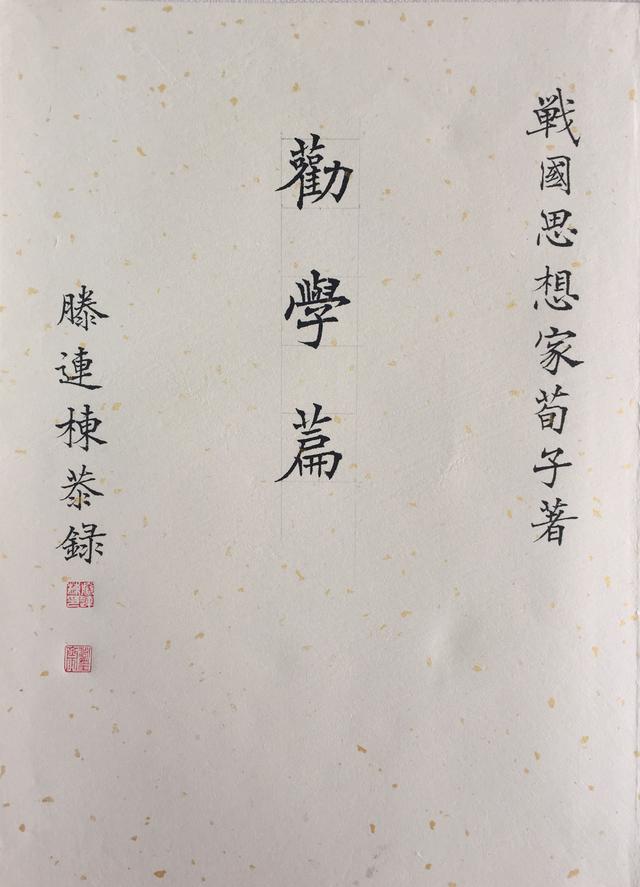 戰國思想家荀子著
勸學篇
滕連棟恭録